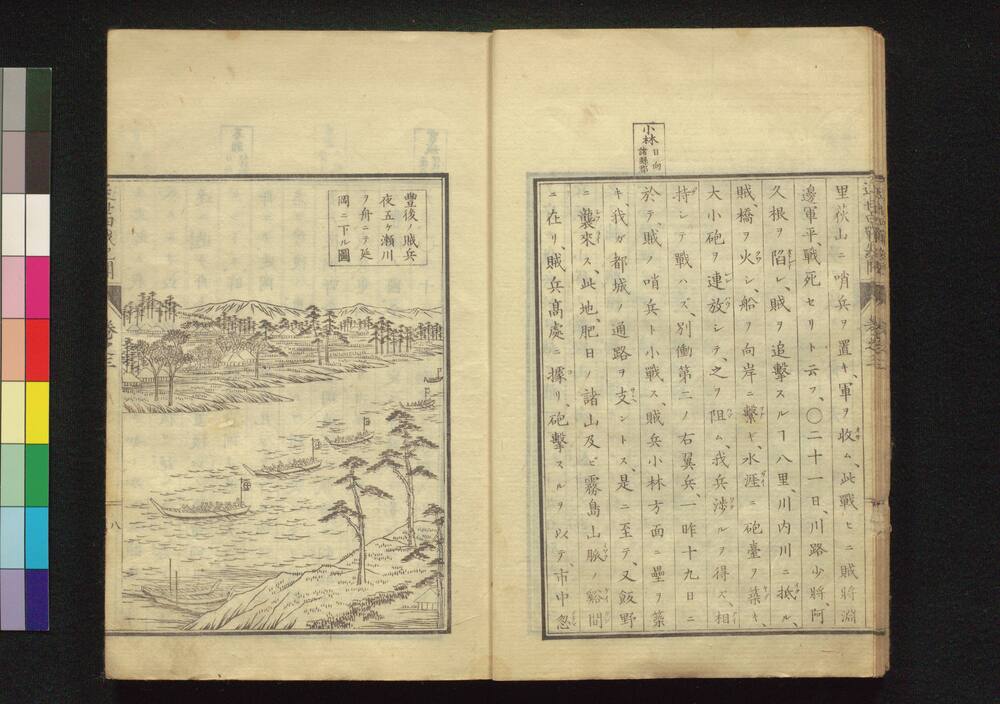 小林 日向諸縣郡
里秋山ニ哨兵ヲ置キ、軍ヲ收ム、此戰ヒニ賊將淵
邊軍平、戰死セリト云フ、〇二十一日、川路少將、阿
久根ヲ陷レ、賊ヲ追擊スルヿ八里、川內川ニ抵ル、
賊、橋ヲ火シ、船ヲ向岸ニ繫ギ、水涯ニ砲臺ヲ築キ、
大小砲ヲ連放シテ、之ヲ阻ム、我兵涉ルヲ得ズ、相
持シテ戰ハズ、別働第二ノ右翼兵、一昨十九日ニ
於テ、賊ノ哨兵ト小戰ス、賊兵小林方面ニ壘ヲ築
キ、我ガ都城ノ通路ヲ支ントス、是ニ至テ、又飯野
ニ襲來ス、此地、肥日ノ諸山及ビ霧島山脈ノ谿間
ニ在リ、賊兵高處ニ據リ、砲擊スルヲ以テ、市中忽
豐後ノ賊兵
夜五ヶ瀨川
ヲ舟ニテ延
岡ニ下ル圖
八